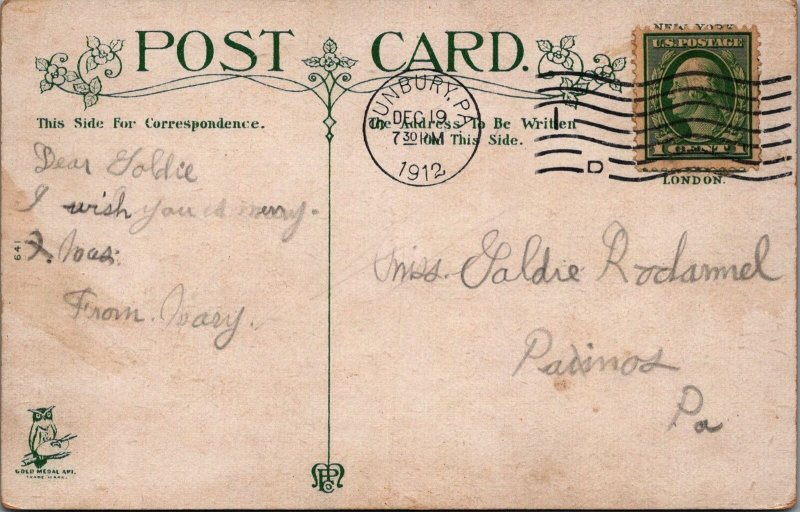 POST CARD.
This Side For Correspondence.
The Address To Be Written
On This Side.
SUNBURY, PA.
DEC 19
7 30 PM
1912
D
NEW YORK
U.S. POSTAGE
LONDON.
Dear Goldie
I wish you a merry.
X. mas.
From.
641
Miss. Goldie Rodarmel
Paxinos
Pa
GOLD MEDAL ART.
TRADE MARK.